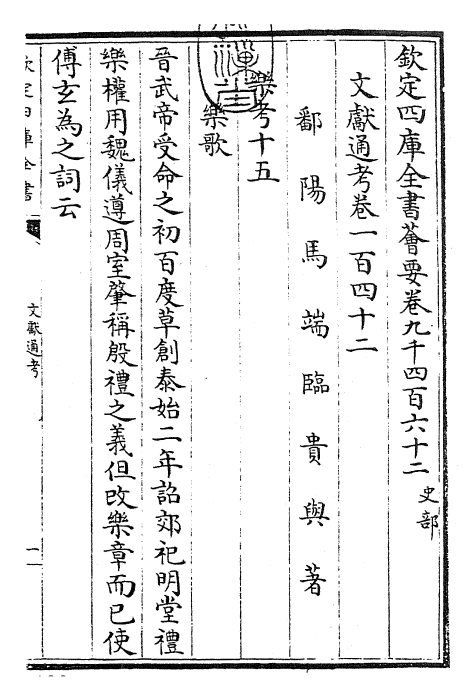 欽定四庫全書薈要卷九千四百六十二 史部
文獻通考卷一百四十二
鄱陽馬端臨貴與著
樂考十五
樂歌
晉武帝受命之初百度草創泰始二年詔郊祀明堂禮
樂權用魏儀遵周室肇稱殷禮之義但改樂章而已使
傅玄為之詞云
欽定四庫全書
文獻通考
一